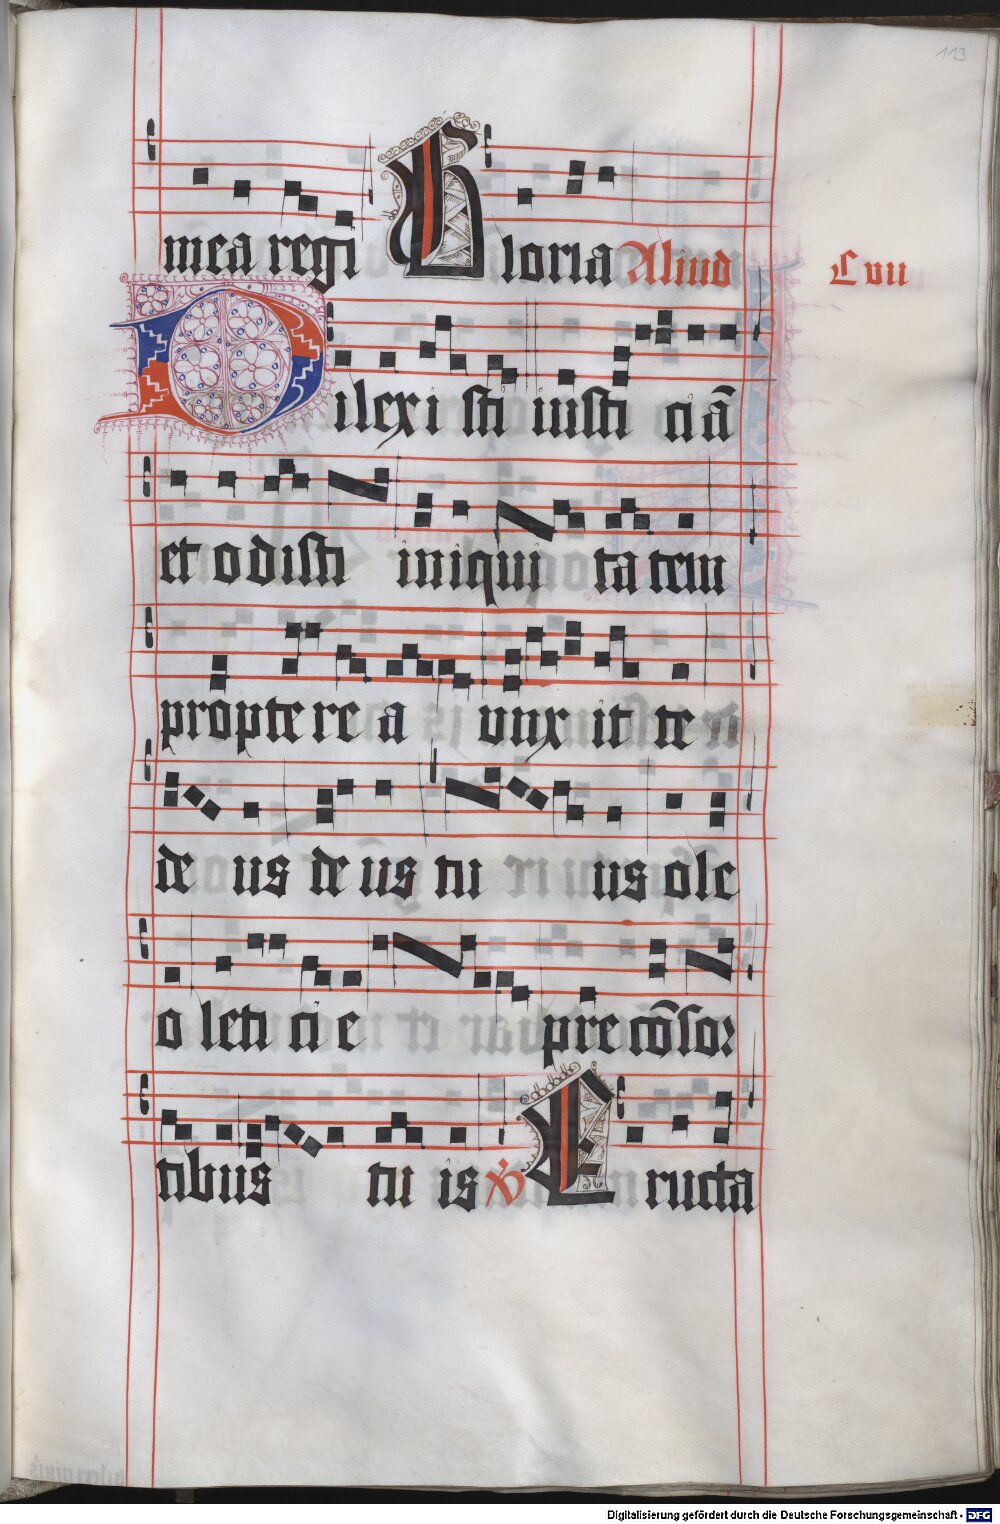 113
mea regi Gloria Aliud Cvii
Dilexi sti iusti ciā
et odisti iniqui ta tem
propte re a unx it te
de us de us tu us ole
o leti ci e pre cōsor
tibus tu is v̇ Eructa
Digitalisierung gefördert durch die Deutsche Forschungsgemeinschaft - DFG